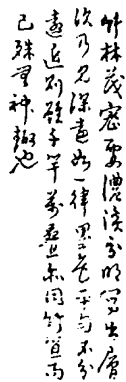 竹林茂密要濃淡分明寫出層
次乃見深遠如一律色平匀不分
遠近則雖千竿萬疊亦同竹而
已殊神也